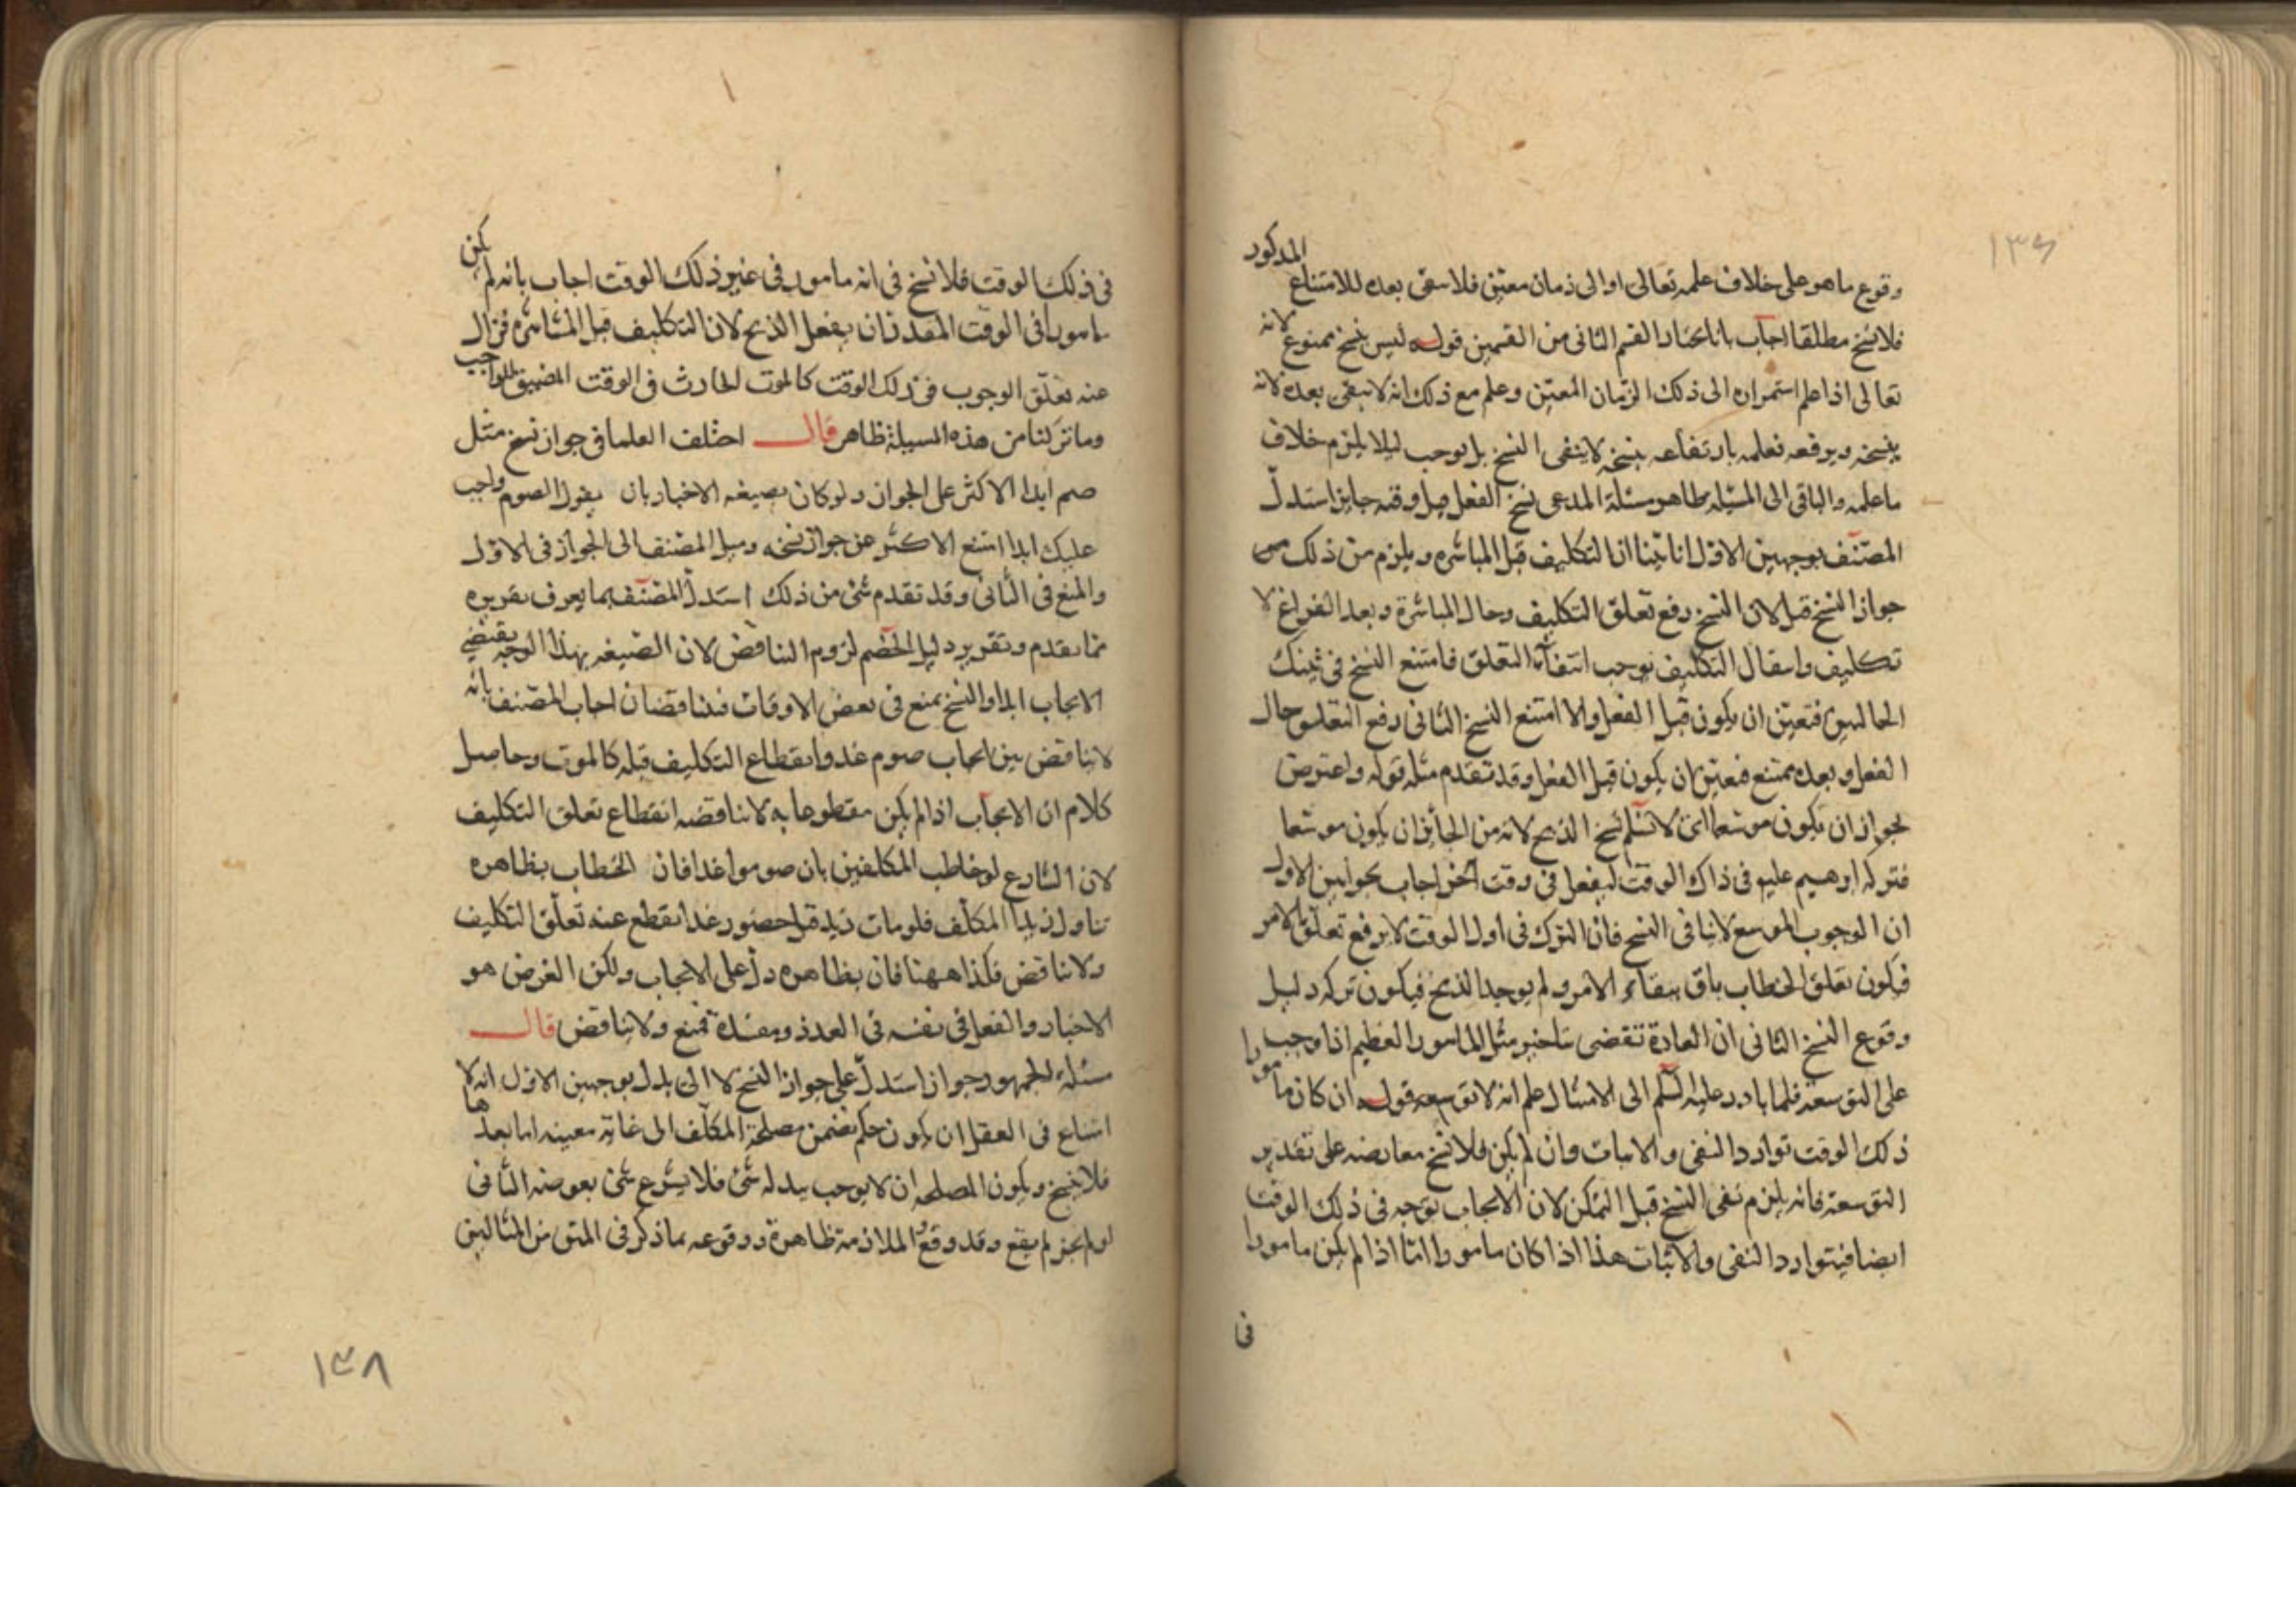 ١٣٧
وقوع ما هو على خلاف علمه تعالى او الى زمان معين فلا يبقى بعده للامتناع المذكور
فلا نسخ مطلقا اجاب بانا نختار القسم الثانى من القسمين قوله ليس بنسخ ممنوع لانه
تعالى اذا علم استمراره الى ذلك الزمان المعين وعلم مع ذلك انه لا يبقى بعده لانه
ينسخه ويرفعه فعلمه بارتفاعه بنسخه لا ينفى النسخ بل يوجب ليلا يلزم خلاف
ما علمه والباقى الى المسئله ظاهر مسئلة المدعى نسخ الفعل قبل وقته جايز استدل
المصنف بوجهين الاول انا بينا ان التكليف قبل المباشره ويلزم من ذلك
جواز النسخ قبل لان النسخ رفع تعلق التكليف وحال المباشرة وبعد الفراغ لا
تكليف وانتفاء التكليف يوجب انتفاء التعلق فامتنع النسخ فى تينك
الحالتين فتعين ان يكون قبل الفعل والا امتنع النسخ الثانى رفع التعلق حال
الفعل وبعده ممتنع فتعين ان يكون قبل الفعل وقد تقدم مثله قوله واعترض
لجواز ان يكون موسعا اى لا نسلم نسخ الذبح لانه من الجائز ان يكون موسعا
فتركه ابرهيم عليه فى ذاك الوقت ليفعل فى وقت آخر اجاب بجوابين الاول
ان الوجوب الموسع لا ينافى النسخ فان الترك فى اول الوقت لا يرفع تعلق الامر
فيكون تعلق الخطاب باق ببقاء الامر ولم يوجد الذبح فيكون تركه دليل
وقوع النسخ الثانى ان العادة تقضى بتاخير مثل المامور العظيم اذا وجب
على التوسعة فلما بادر عليه السلم الى الامتثال علم انه لا توسعه قوله ان كان مامورا
ذلك الوقت توارد النفى والاثبات وان لم يكن فلا نسخ معارضه على تقدير
التوسعة فانه يلزم نفى النسخ قبل التمكن لان الايجاب توجه فى ذلك الوقت
ايضا فيتوارد النفى والاثبات هذا اذا كان مامورا اما اذا لم يكن مامورا
فى
فى ذلك الوقت فلا نسخ فى انه مامور فى غير ذلك الوقت اجاب بانه لم يكن
مامورا فى الوقت المقدر ان يفعل الذبح لان التكليف قبل المباشره فزال
عنه تعلق الوجوب فى ذلك الوقت كالموت الحادث فى الوقت المضيق للواجب
وما تركنا من هذه المسيلة ظاهر قال اختلف العلما فى جواز نسخ مثل
صم ابدا الاكثر على الجواز ولو كان بصيغه الاخبار بان يقول الصوم واجب
عليك ابدا امتنع الاكثر عن جواز نسخه وميل المصنف الى الجواز فى الاول
والمنع فى الثانى وقد تقدم شئ من ذلك استدل المصنف بما يعرف تقريره
مما تقدم وتقرير دليل الخصم لزوم التناقض لان الصيغه بهذا الوجه يقتضى
الايجاب ابدا والنسخ يمنع فى بعض الاوقات فتناقضان اجاب المصنف بانه
لا يناقض بين ايجاب صوم غد وانقطاع التكليف قبله كالموت وحاصل
كلام ان الايجاب اذا لم يكن مقطوعا به لا يناقضه انقطاع تعلق التكليف
لان الشارع لو خاطب المكلفين بان صوموا غدا فان الخطاب بظاهره
تناول زيدا المكلف فلو مات زيد قبل حضور غد انقطع عنه تعلق التكليف
ولا يناقض فكذا ههنا فان بظاهره دل على الايجاب ولكن الغرض هو
الاخبار والفعل فى نفسه فى العدد ومفسدة فمنع ولا يناقض قال
مسئلة الجمهور جواز استدل على جواز النسخ لا الى بدل بوجهين الاول انه لا
امتناع فى العقل ان يكون حكم يضمن مصلحة المكلف الى غاية معينه اما بعدها
فلا نسخ ويكون المصلحه ان لا يوجب بدله شئ فلا يشرع شئ بعوضه الثانى
لو لم يجز لم يقع وقد وقع الملازمة ظاهرة ووقوعه بما ذكر فى المتن من المثالين
١٣٨